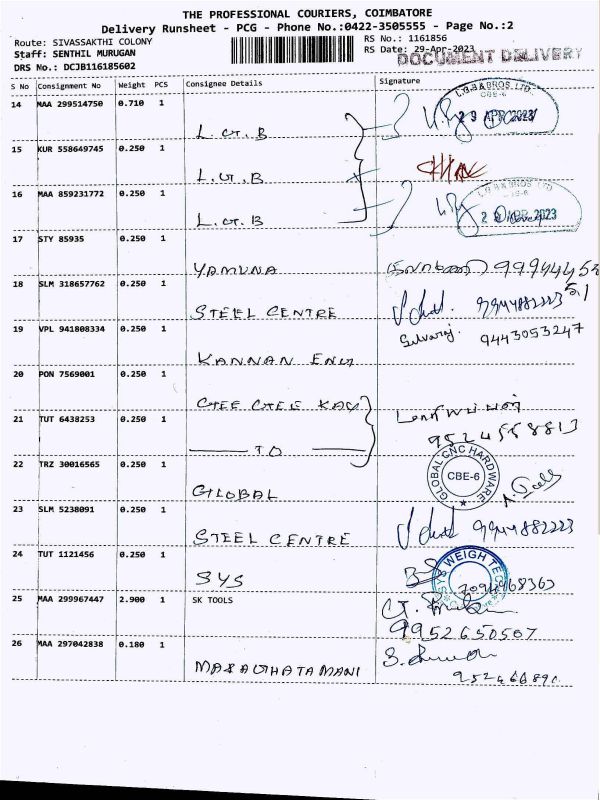 THE PROFESSIONAL COURIERS, COIMBATORE
Delivery Runsheet - PCG - Phone No.:0422-3505555 - Page No.:2
Route: SIVASSAKTHI COLONY
RS No.: 1161856
Staff: SENTHIL MURUGAN
RS Date: 29-Apr-2023
DOCUMENT DELIVERY
DRS No.: DCJB116185602
S No Consignment No Weight PCS Consignee Details Signature
14 MAA 299514750 0.710 1
L.G.B
L.G.B & BROS LTD.
CBE-6
29 APR 2023
15 KUR 558649745 0.250 1
L.G.B
16 MAA 859231772 0.250 1
L.G.B
L.G.B & BROS LTD
17 STY 85935 0.250 1
YAMUNA
18 SLM 318657762 0.250 1
STEEL CENTRE 9944882223
19 VPL 941808334 0.250 1
Selvaraj. 9443053247
KANNAN ENG
20 PON 7569001 0.250 1
GEE GEE KAY
21 TUT 6438253 0.250 1
TO
9524558813
22 TRZ 30016565 0.250 1
GLOBAL
GLOBAL CNC HARDWARE
CBE-6
23 SLM 5238091 0.250 1
STEEL CENTRE 9944882223
24 TUT 1121456 0.250 1
SYS
SYS WEIGH TECH
25 MAA 299967447 2.900 1 SK TOOLS
9952650507
26 MAA 297042838 0.180 1